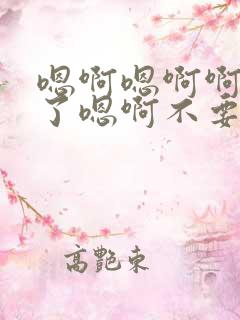 嗯啊嗯啊啊
了嗯啊不要
高艷東